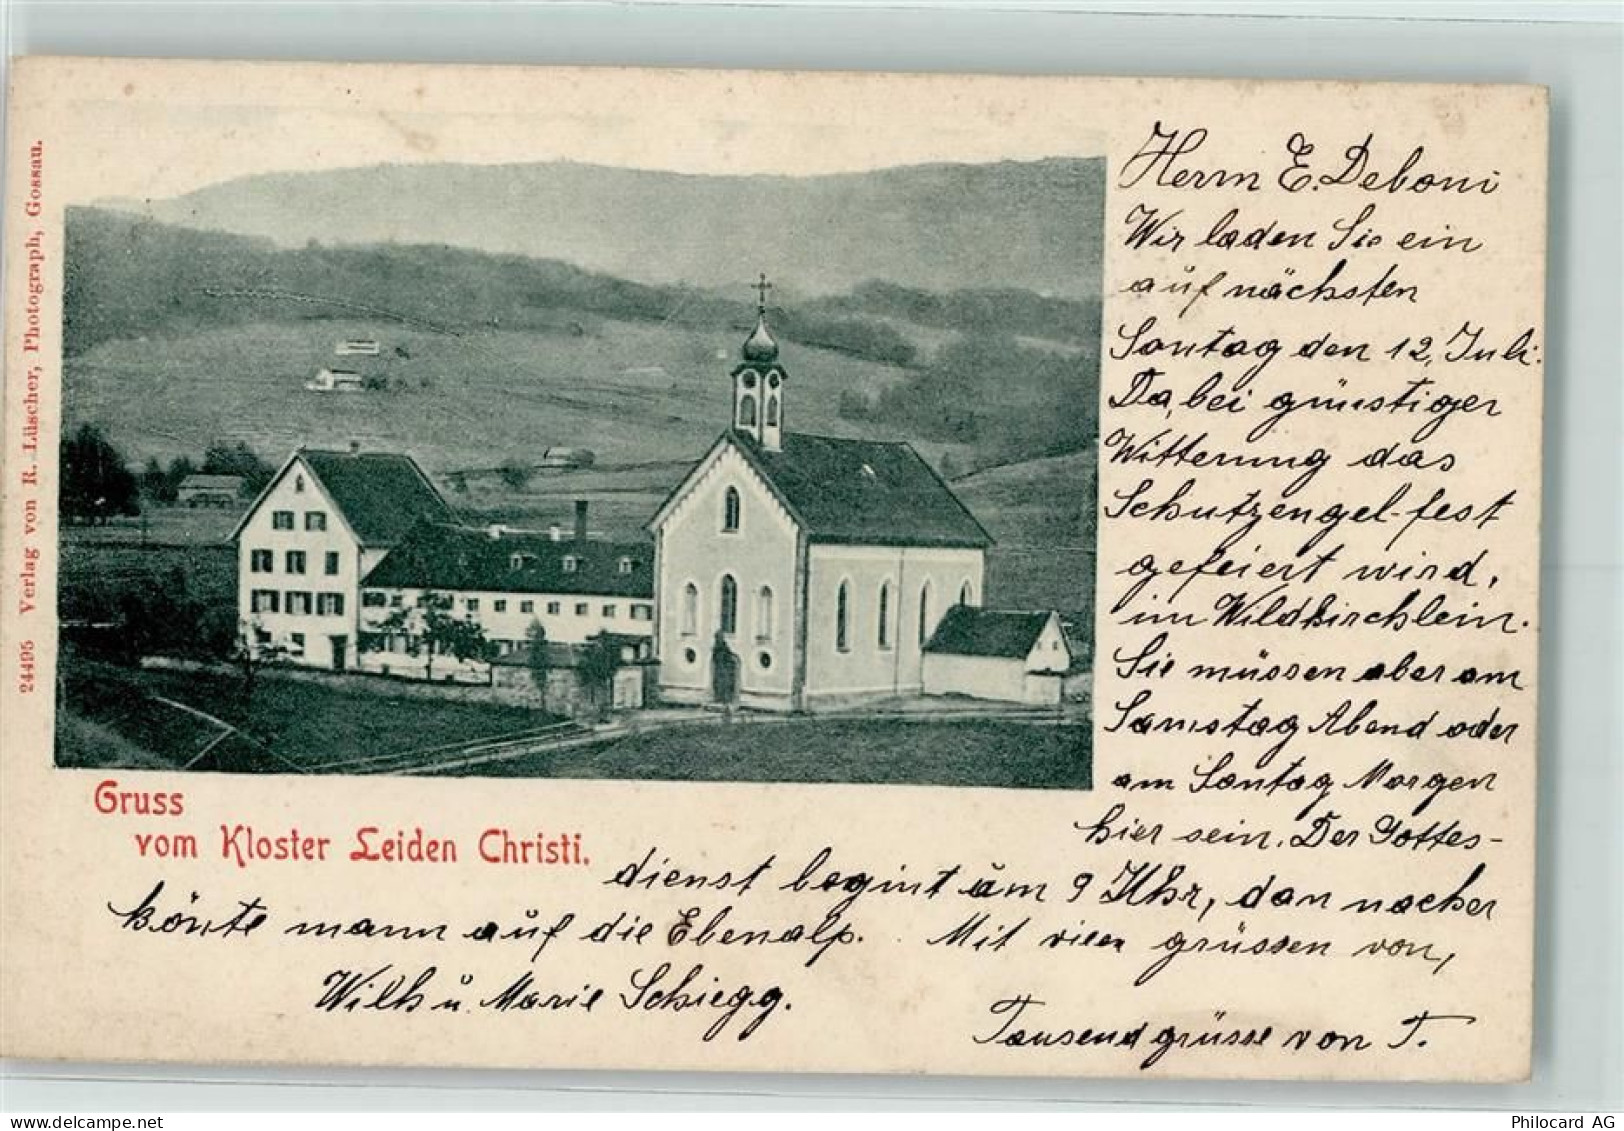 24495 Verlag von R. Lüscher, Photograph, Gossau.
Herrn E. Deboni
Wir laden Sie ein
auf nächsten
Sontag den 12, Juli.
Da, bei günstiger
Witterung das
Schutzengel-fest
gefeiert wird,
im Wildkirchlein.
Sie müssen aber am
Samstag Abend oder
am Sontag Morgen
hier sein. Der Gottes-
dienst begint um 9 Uhr, dan nacher
könte mann auf die Ebenalp. Mit vielen grüssen von,
Wilh u. Marie Schiegg.
Tausend grüsse von T.
Gruss
vom Kloster Leiden Christi.
Philocard AG